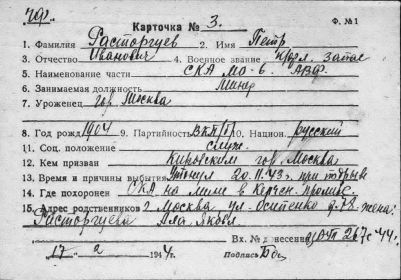 Карточка № 3. Ф. № 1
1. Фамилия Расторгуев 2. Имя Петр
3. Отчество Иванович 4. Военное звание
5. Наименование части СКА МО-6. АВФ
6. Занимаемая должность Минер
7. Уроженец гор Москва
8. Год рожд. 1904 9. Партийность ВКП/б/ 10. Национ. русский
11. Соц. положение служ.
12. Кем призван Кировским гор. Москва
13. Время и причины выбытия Утонул 20.11.43г. при взрыве
14. Где похоронен СКА на мине в Керчен. проливе.
15. Адрес родственников г Москва ул. Осипенко д. 78 жена:
Расторгуева
17 2 1944г. Вх. № донесения 267с 44г.
Подпись